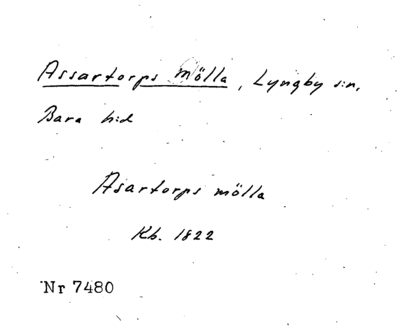 Assartorps mölla, Lyngby sn,
Bara hd
Asartorps mölla
Kb. 1822
Nr 7480